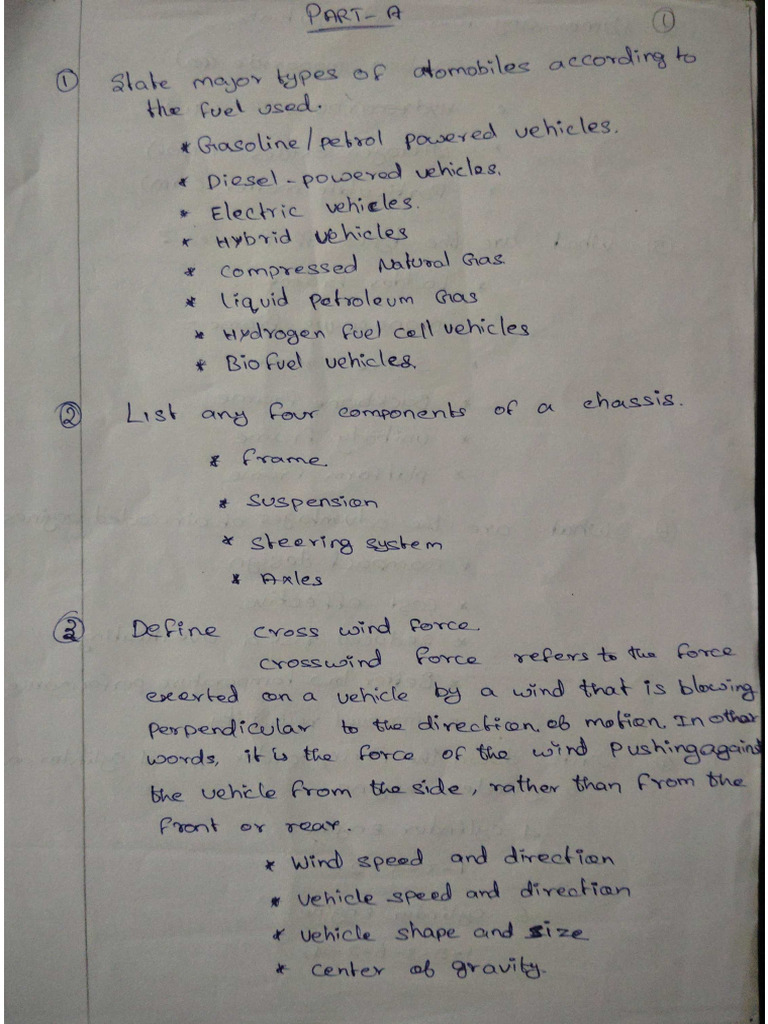 PART-A
①
① State major types of atomobiles according to
the fuel used.
* Gasoline/petrol powered vehicles.
* Diesel-powered vehicles.
* Electric vehicles.
* Hybrid vehicles
* compressed Natural Gas
* Liquid petroleum Gas
* Hydrogen fuel cell vehicles
* Biofuel vehicles.
② List any four components of a chassis.
* frame
* Suspension
* steering system
* Axles
③ Define cross wind force.
crosswind force refers to the force
exerted on a vehicle by a wind that is blowing
perpendicular to the direction of motion. In other
words, it is the force of the wind pushing against
the vehicle from the side, rather than from the
front or rear.
* Wind speed and direction
* vehicle speed and direction
* vehicle shape and size
* center of gravity.